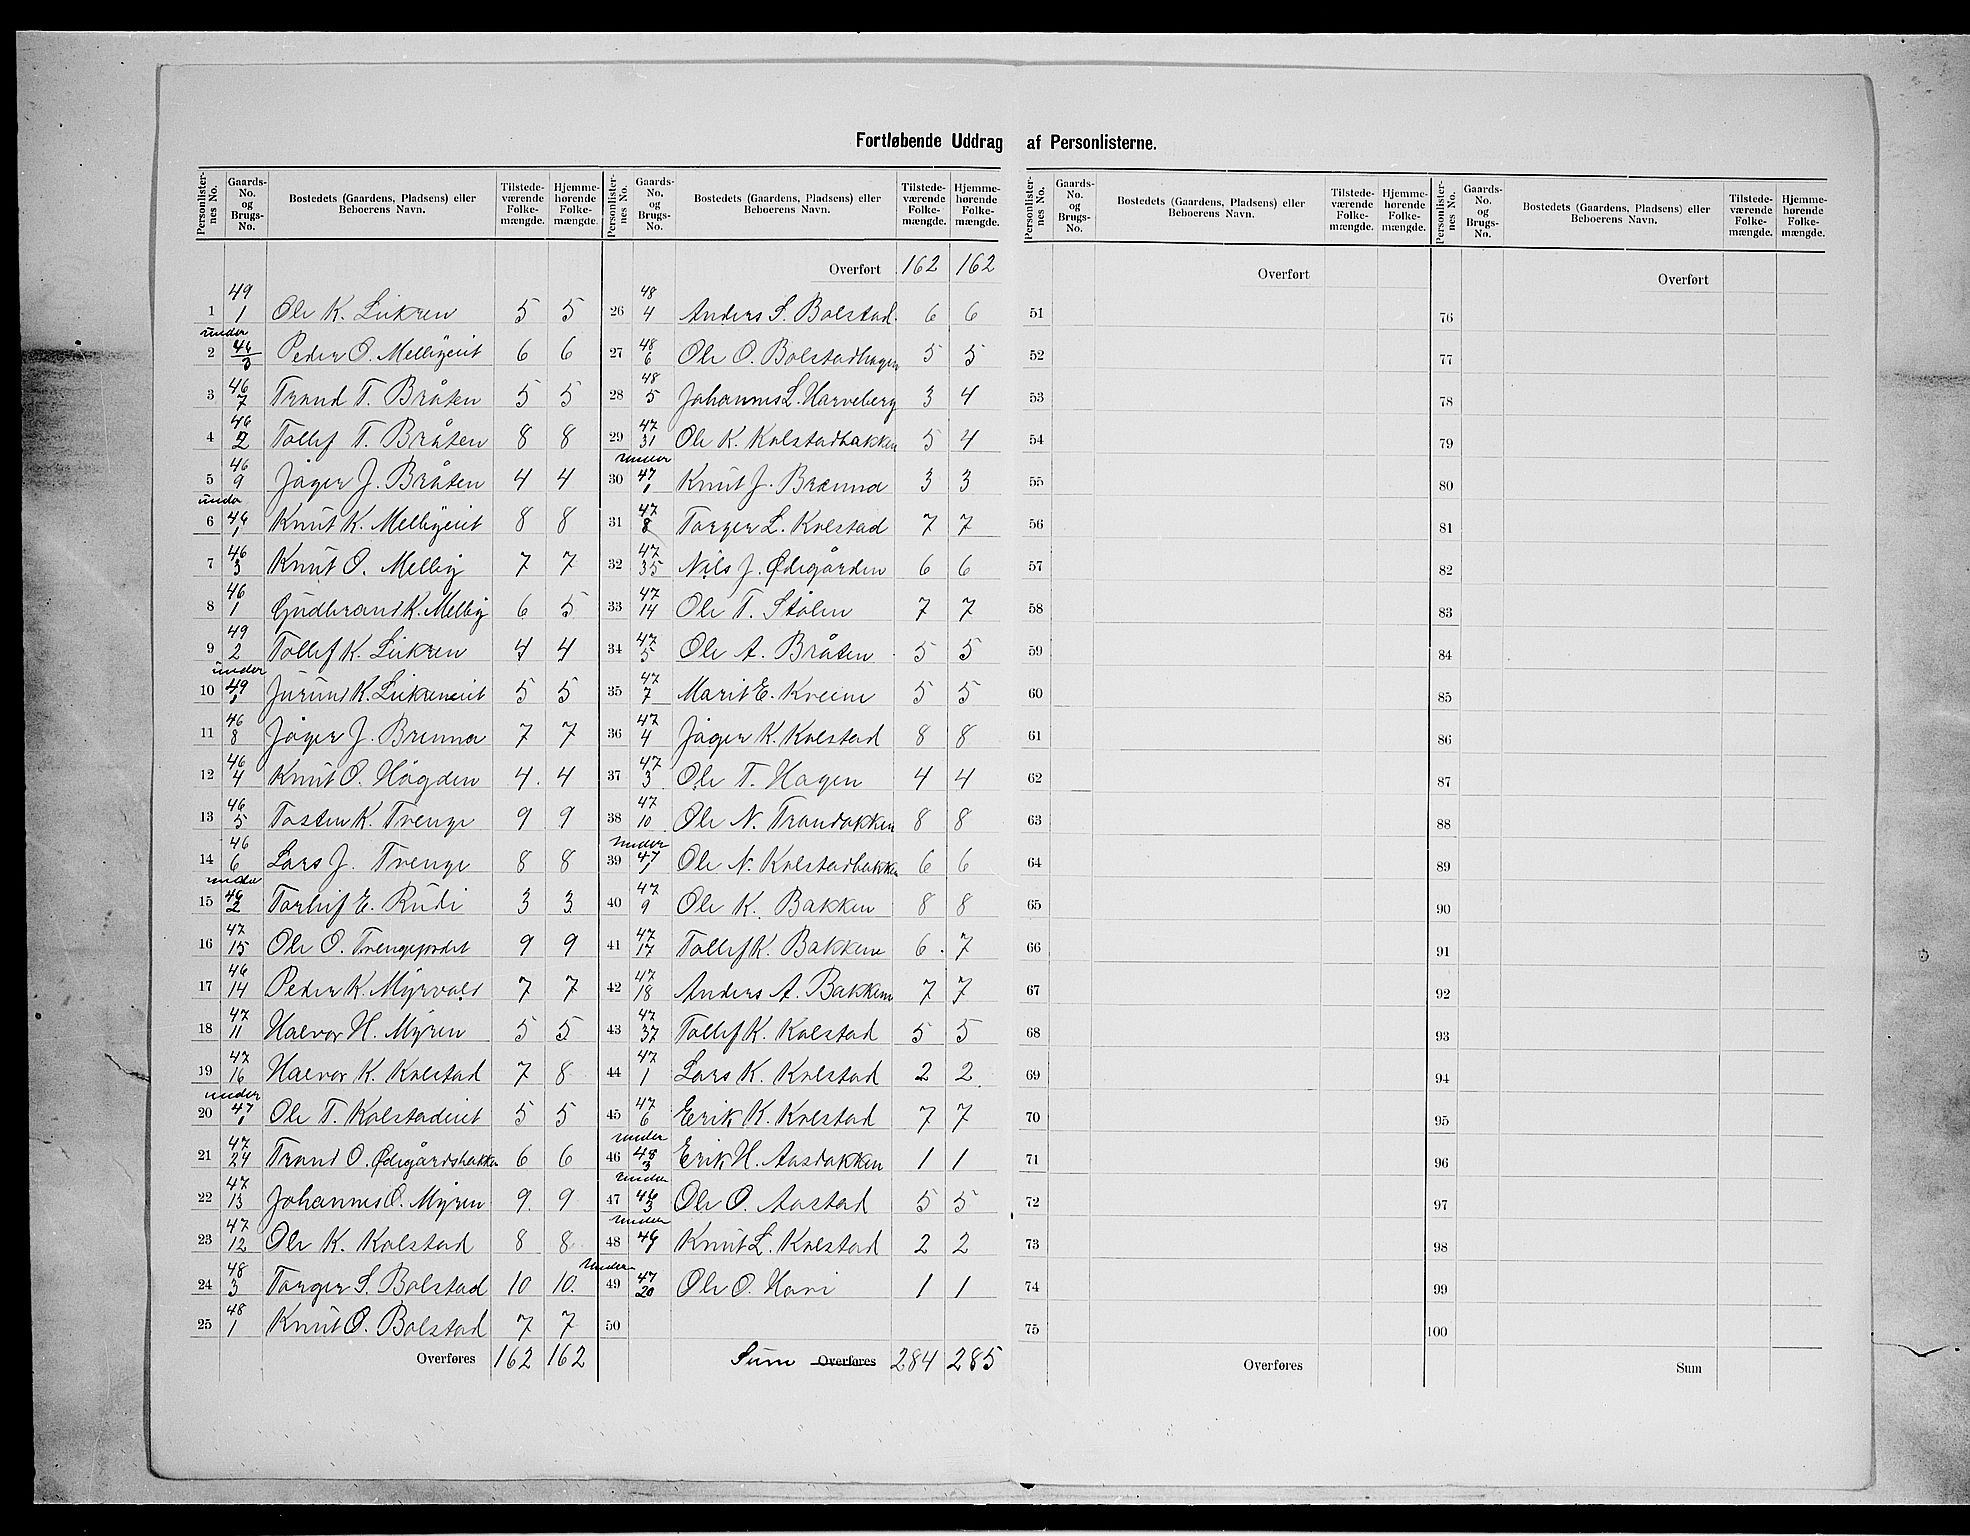 Fortløbende Uddrag af Personlisterne.
Personlisternes No. Gaards-No. og Brugs-No. Bostedets (Gaardens, Pladsens) eller Beboerens Navn. Tilstedeværende Folkemængde. Hjemmehørende Folkemængde.
1 49/1 Ole K. Liikren 5 5
2 under 46/3 Peder O. Mellbyeiet 6 6
3 46/7 Trond T. Bråten 5 5
4 46/2 Tollef T. Bråten 8 8
5 46/9 Jøger J. Bråten 4 4
6 under 46/1 Knut K. Mellbyeiet 8 8
7 46/3 Knut O. Mellby 7 7
8 46/1 Gudbrand K. Mellby 6 5
9 49/2 Tollef K. Liikren 4 4
10 under 49/1 Jurund K. Liikreneiet 5 5
11 46/8 Jøger J. Brenna 7 7
12 46/4 Knut O. Høgden 4 4
13 46/5 Tosten K. Tvenge 9 9
14 46/6 Lars J. Tvenge 8 8
15 under 46/2 Torleif E. Rudi 3 3
16 47/15 Ole O. Tvengejordet 9 9
17 46/14 Peder K. Myrvold 7 7
18 47/11 Halvor H. Myren 5 5
19 47/16 Halvor K. Kolstad 7 8
20 under 47/1 Ole T. Kolstadeiet 5 5
21 47/24 Trond O. Ødegårdsbakken 6 6
22 47/13 Johannes O. Myren 9 9
23 47/12 Ole K. Kolstad 8 8
24 48/3 Torger S. Bolstad 10 10
25 48/1 Knut O. Bolstad 7 7
Overføres 162 162
Personlisternes No. Gaards-No. og Brugs-No. Bostedets (Gaardens, Pladsens) eller Beboerens Navn. Tilstedeværende Folkemængde. Hjemmehørende Folkemængde.
Overført 162 162
26 48/4 Anders S. Bolstad 6 6
27 48/6 Ole O. Bolstadhagen 5 5
28 48/5 Johannes L. Harveberg 3 4
29 47/31 Ole K. Kolstadbakken 5 4
30 under 47/1 Knut J. Brænna 3 3
31 47/8 Torger L. Kolstad 7 7
32 47/35 Nils J. Ødegården 6 6
33 47/14 Ole T. Stølen 7 7
34 47/5 Ole A. Bråten 5 5
35 47/7 Marit E. Kveim 5 5
36 47/4 Jøger K. Kolstad 8 8
37 47/3 Ole T. Hagen 4 4
38 47/10 Ole N. Trondbakken 8 8
39 under 47/1 Ole N. Kolstadbakken 6 6
40 47/9 Ole K. Bakken 8 8
41 47/17 Tollef K. Bakken 6 7
42 47/18 Anders A. Bakken 7 7
43 47/37 Tollef K. Kolstad 5 5
44 47/1 Lars K. Kolstad 2 2
45 47/6 Erik K. Kolstad 7 7
46 under 48/3 Erik H. Aasbakken 1 1
47 under 46/3 Ole O. Aastad 5 5
48 under Knut L. Kolstad 2 2
49 under 47/20 Ole O. Hovi 1 1
50
Sum Overføres 284 285
Personlisternes No. Gaards-No. og Brugs-No. Bostedets (Gaardens, Pladsens) eller Beboerens Navn. Tilstedeværende Folkemængde. Hjemmehørende Folkemængde.
Overført
51
52
53
54
55
56
57
58
59
60
61
62
63
64
65
66
67
68
69
70
71
72
73
74
75
Overføres
Personlisternes No. Gaards-No. og Brugs-No. Bostedets (Gaardens, Pladsens) eller Beboerens Navn. Tilstedeværende Folkemængde. Hjemmehørende Folkemængde.
Overført
76
77
78
79
80
81
82
83
84
85
86
87
88
89
90
91
92
93
94
95
96
97
98
99
100
Sum